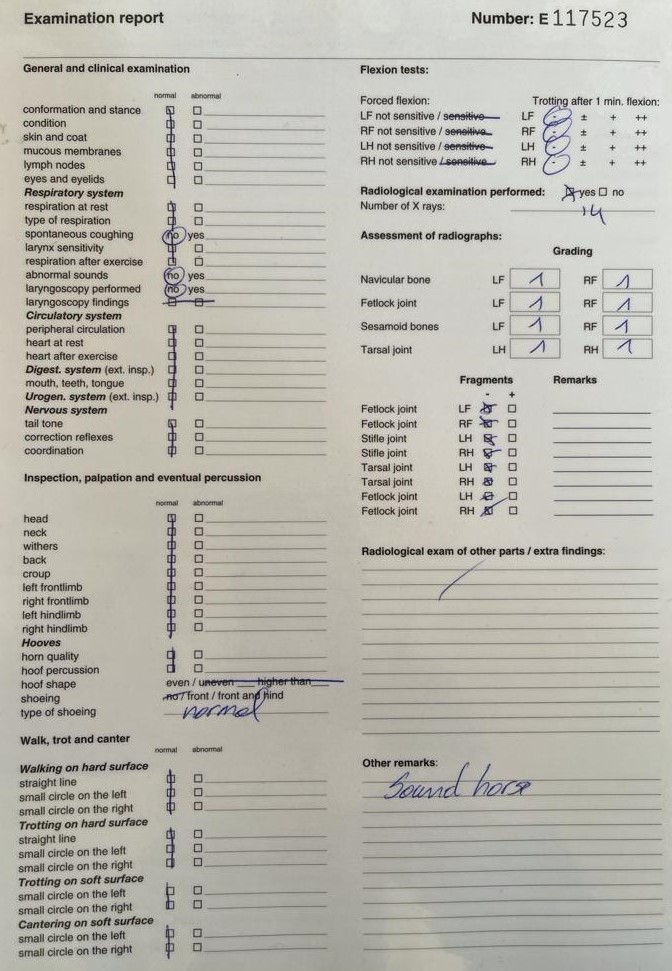 Examination report
Number: E 117523
General and clinical examination
normal abnormal
conformation and stance
condition
skin and coat
mucous membranes
lymph nodes
eyes and eyelids
Respiratory system
respiration at rest
type of respiration
spontaneous coughing no yes
larynx sensitivity
respiration after exercise
abnormal sounds no yes
laryngoscopy performed no yes
laryngoscopy findings
Circulatory system
peripheral circulation
heart at rest
heart after exercise
Digest. system (ext. insp.)
mouth, teeth, tongue
Urogen. system (ext. insp.)
Nervous system
tail tone
correction reflexes
coordination
Inspection, palpation and eventual percussion
normal abnormal
head
neck
withers
back
croup
left frontlimb
right frontlimb
left hindlimb
right hindlimb
Hooves
horn quality
hoof percussion
hoof shape even / uneven higher than
shoeing no / front / front and hind
type of shoeing normal
Walk, trot and canter
normal abnormal
Walking on hard surface
straight line
small circle on the left
small circle on the right
Trotting on hard surface
straight line
small circle on the left
small circle on the right
Trotting on soft surface
small circle on the left
small circle on the right
Cantering on soft surface
small circle on the left
small circle on the right
Flexion tests:
Forced flexion: Trotting after 1 min. flexion:
LF not sensitive / sensitive LF - ± + ++
RF not sensitive / sensitive RF - ± + ++
LH not sensitive / sensitive LH - ± + ++
RH not sensitive / sensitive RH - ± + ++
Radiological examination performed: yes no
Number of X rays: 14
Assessment of radiographs:
Grading
Navicular bone LF 1 RF 1
Fetlock joint LF 1 RF 1
Sesamoid bones LF 1 RF 1
Tarsal joint LH 1 RH 1
Fragments Remarks
- +
Fetlock joint LF
Fetlock joint RF
Stifle joint LH
Stifle joint RH
Tarsal joint LH
Tarsal joint RH
Fetlock joint LH
Fetlock joint RH
Radiological exam of other parts / extra findings:
Other remarks:
Sound horse